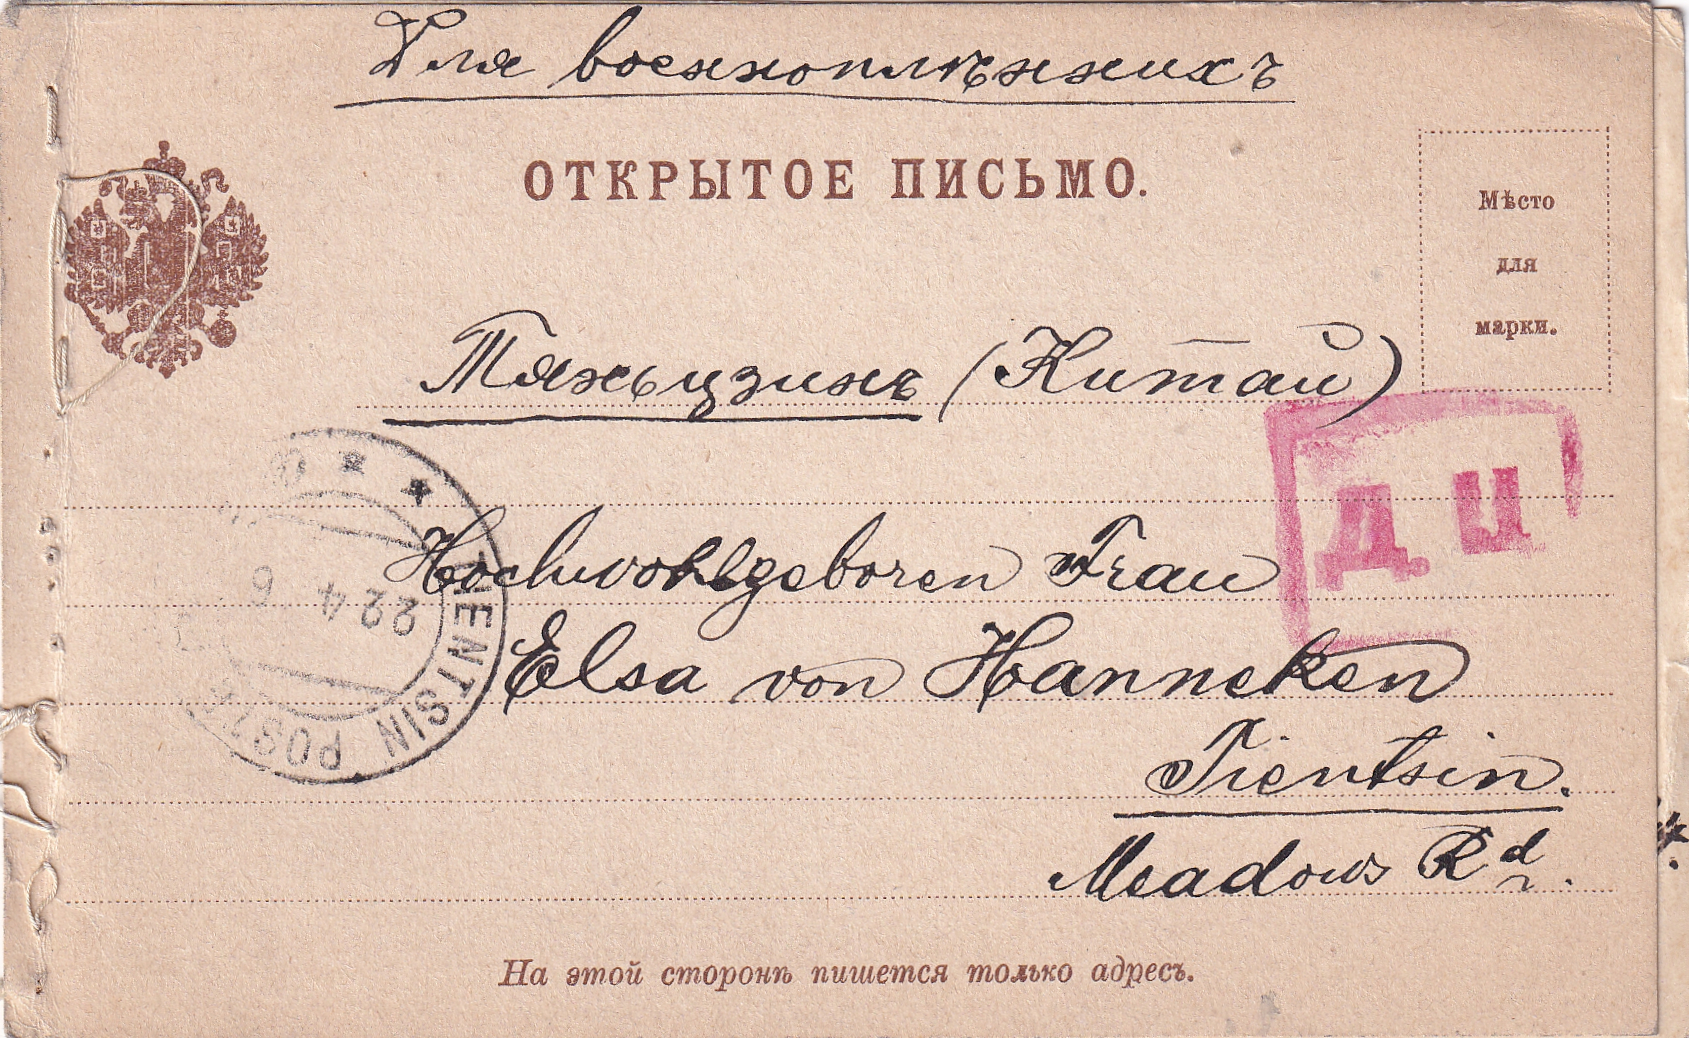 Для военноплѣнныхъ
ОТКРЫТОЕ ПИСЬМО.
Мѣсто
для
марки.
Тяньцзинъ (Китай)
Д Ц
Hochwohlgeboren Frau
22 4 6
TIENTSIN POST
Elsa von Hanneken
Tientsin.
Meadows Rd.
На этой сторонѣ пишется только адресъ.